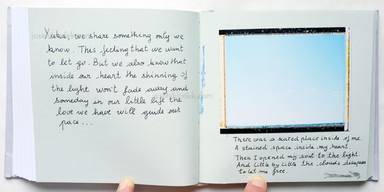 Yukiko we share something only we
know. This feeling that we want
to let go. But we also know that
inside our heart the shinning of
the light won't fade away and
someday in our little life the
love we have will guide our
pace...
There was a sacred place inside of me.
A stained space inside my heart.
Then I opened my soul to the light.
And little by little the clouds disappear
to let me free.